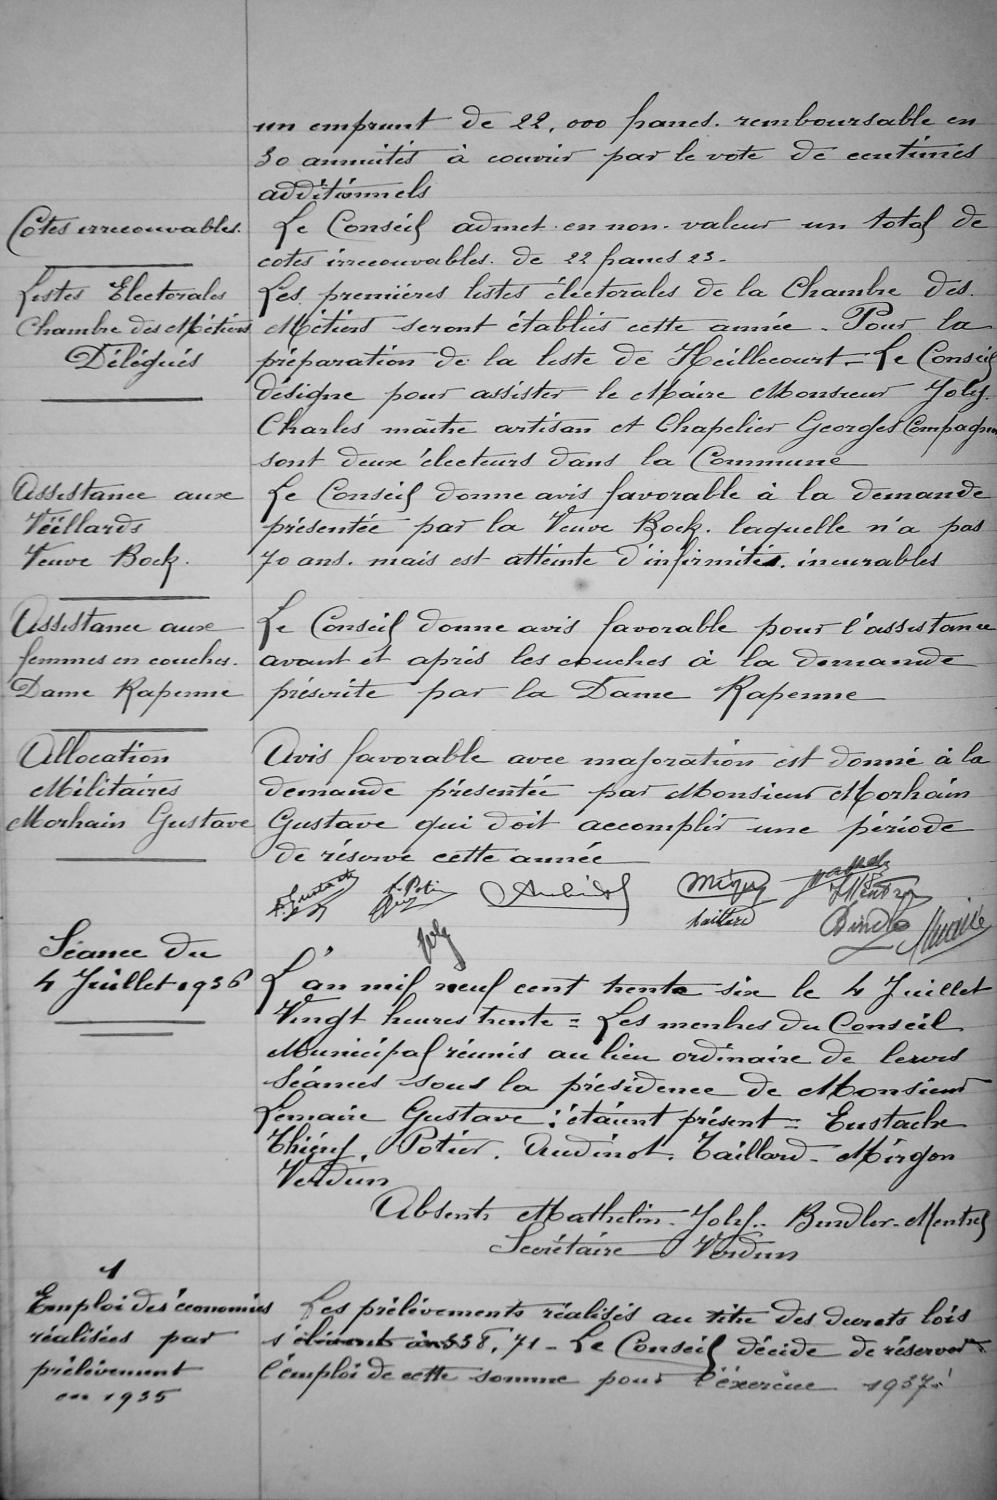 un emprunt de 22,000 francs. remboursable en
30 annuités à couvrir par le vote de centimes
additionnels
Cotes irrecouvrables.
Le Conseil admet en non-valeur un total de
cotes irrecouvrables. de 22 francs 23-
Listes Electorales
Chambre des Métiers
Délégués
Les premières listes électorales de la Chambre des
Métiers seront établies cette année. Pour la
préparation de la liste de Heillecourt. Le Conseil
désigne pour assister le Maire Monsieur Joly.
Charles maître artisan et Chapelier Georges Compagnon
sont deux électeurs dans la Commune
Assistance aux
Vieillards
Veuve Bock.
Le Conseil donne avis favorable à la demande
présentée par la Veuve Bock. laquelle n'a pas
70 ans. mais est atteinte d'infirmités. incurables
Assistance aux
femmes en couches.
Dame Rapenne
Le Conseil donne avis favorable pour l'assistance
avant et après les couches à la demande
présente par la Dame Rapenne
Allocation
Militaires
Morhain Gustave
Avis favorable avec majoration est donné à la
demande présentée par Monsieur Morhain
Gustave qui doit accomplir une période
de réserve cette année
Joly
Séance du
4 Juillet 1936
L'an mil neuf cent trente six le 4 Juillet
Vingt heures trente = Les membres du Conseil
Municipal réunis au lieu ordinaire de leurs
Séances sous la présidence de Monsieur
Lemaire Gustave ; étaient présent = Eustache
Thiéry, Potier. Audinot. Taillard - Mirgon
Verdun
Absents Mathelin - Joly - Bindler - Mentrel
Secrétaire Verdun
1
Emploi des économies
réalisées par
prélèvement
en 1935
Les prélèvements réalisés au titre des decrets lois
s'élèvent à 71 - Le Conseil décide de réserver
l'emploi de cette somme pour l'éxercice 1937.